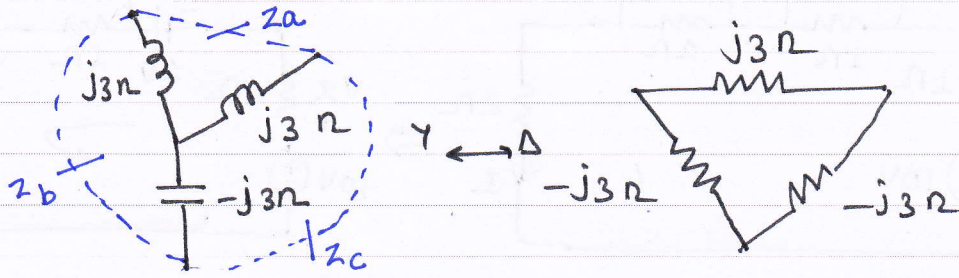 Za
j3Ω
j3Ω
Zb
-j3Ω
Zc
Y ↔ Δ
j3Ω
-j3Ω
-j3Ω